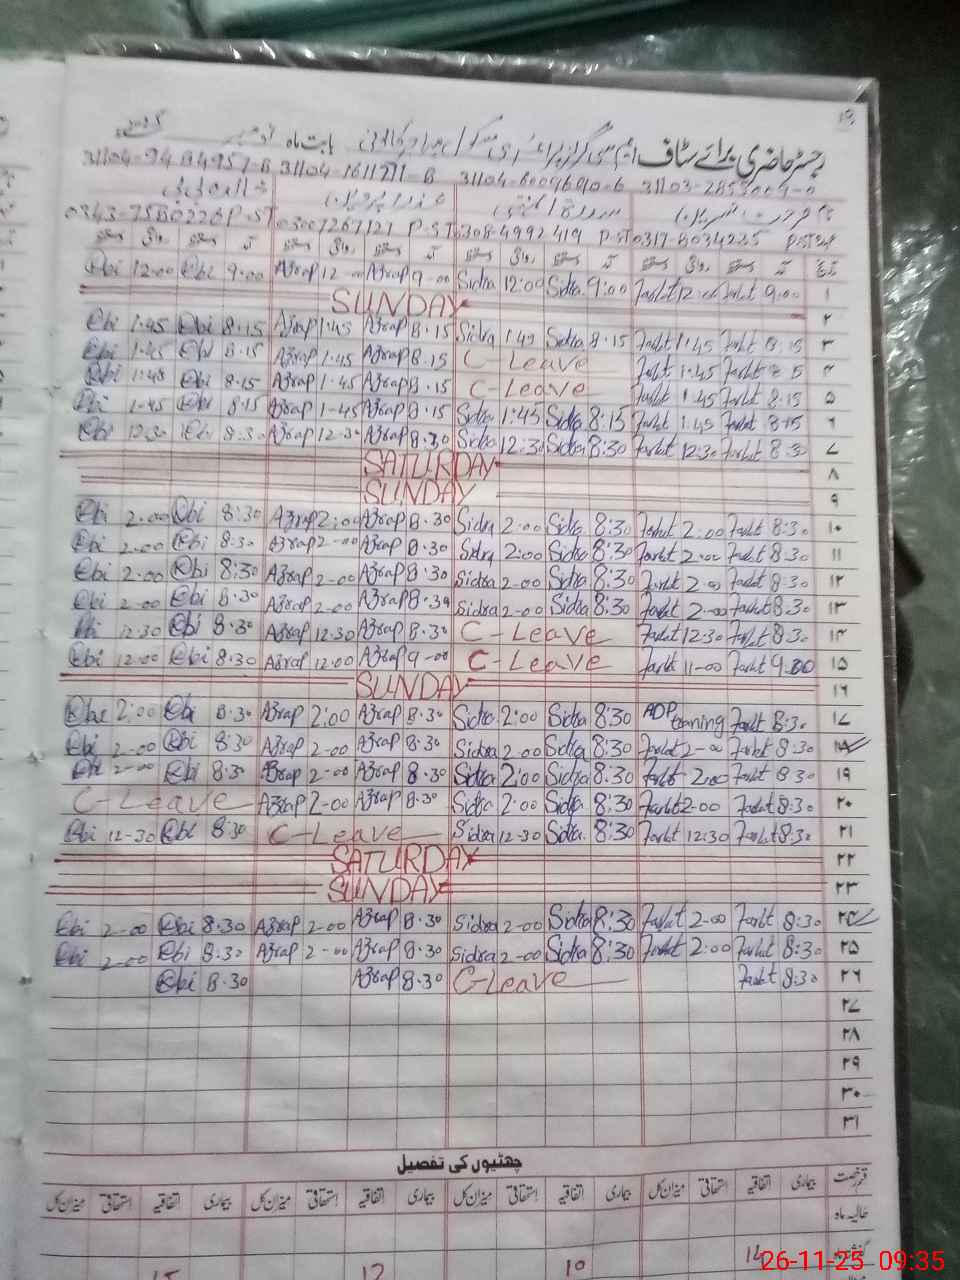 رجسٹر حاضری برائے سٹاف بابت ماہ
31104-1611711-8 31104-6009640-6 31103-2853009-0
0343-7580226 PST 03007267121 PST 0308-4992419 PST 0317-8034225 PST
دستخط روانگی دستخط آمد دستخط روانگی دستخط آمد دستخط روانگی دستخط آمد دستخط روانگی دستخط آمد تاریخ
Obi 12-00 Obi 9-00 Azrap 12-00 Azrap 9-00 Sidra 12:00 Sidra 9:00 Farht 12-00 Farht 9:00 ۱
SUNDAY ۲
Obi 1-45 Obi 8-15 Azrap 1-45 Azrap 8-15 Sidra 1:45 Sidra 8-15 Farht 1-45 Farht 8-15 ۳
Obi 1-45 Obi 8-15 Azrap 1-45 Azrap 8-15 C-Leave Farht 1-45 Farht 8-15 ۴
Obi 1-45 Obi 8-15 Azrap 1-45 Azrap 8-15 C-Leave Farht 1-45 Farht 8-15 ۵
Obi 1-45 Obi 8-15 Azrap 1-45 Azrap 8-15 Sidra 1:45 Sidra 8:15 Farht 1-45 Farht 8-15 ۶
Obi 12-30 Obi 8-30 Azrap 12-30 Azrap 8-30 Sidra 12:30 Sidra 8:30 Farht 12:30 Farht 8-30 ۷
SATURDAY ۸
SUNDAY ۹
Obi 2-00 Obi 8:30 Azrap 2:00 Azrap 8-30 Sidra 2:00 Sidra 8:30 Farht 2-00 Farht 8:30 ۱۰
Obi 2-00 Obi 8:30 Azrap 2-00 Azrap 8-30 Sidra 2:00 Sidra 8:30 Farht 2-00 Farht 8:30 ۱۱
Obi 2-00 Obi 8:30 Azrap 2-00 Azrap 8-30 Sidra 2-00 Sidra 8:30 Farht 2-00 Farht 8:30 ۱۲
Obi 2-00 Obi 8-30 Azrap 2-00 Azrap 8-30 Sidra 2-00 Sidra 8:30 Farht 2-00 Farht 8-30 ۱۳
Obi 12-30 Obi 8-30 Azrap 12-30 Azrap 8-30 C-Leave Farht 12-30 Farht 8-30 ۱۴
Obi 12-00 Obi 8:30 Azrap 12:00 Azrap 9-00 C-Leave Farht 11-00 Farht 9.00 ۱۵
SUNDAY ۱۶
Obi 2:00 Obi 8-30 Azrap 2:00 Azrap 8-30 Sidra 2:00 Sidra 8:30 ADP training Farht 8:30 ۱۷
Obi 2-00 Obi 8:30 Azrap 2-00 Azrap 8:30 Sidra 2-00 Sidra 8:30 Farht 2-00 Farht 8:30 ۱۸
Obi 2-00 Obi 8-30 Azrap 2-00 Azrap 8-30 Sidra 2:00 Sidra 8:30 Farht 2:00 Farht 8:30 ۱۹
C-Leave Azrap 2-00 Azrap 8-30 Sidra 2:00 Sidra 8:30 Farht 2-00 Farht 8:30 ۲۰
Obi 12-30 Obi 8:30 C-Leave Sidra 12-30 Sidra 8:30 Farht 12:30 Farht 8:30 ۲۱
SATURDAY ۲۲
SUNDAY ۲۳
Obi 2-00 Obi 8:30 Azrap 2-00 Azrap 8-30 Sidra 2-00 Sidra 8:30 Farht 2-00 Farht 8:30 ۲۴
Obi 2-00 Obi 8-30 Azrap 2-00 Azrap 8-30 Sidra 2-00 Sidra 8:30 Farht 2:00 Farht 8:30 ۲۵
Obi 8-30 Azrap 8-30 C-Leave Farht 8:30 ۲۶
۲۷
۲۸
۲۹
۳۰
۳۱
چھٹیوں کی تفصیل
قسم رخصت بیماری اتفاقیہ استحقاقی میزان کل بیماری اتفاقیہ استحقاقی میزان کل بیماری اتفاقیہ استحقاقی میزان کل بیماری اتفاقیہ استحقاقی میزان کل
حالیہ ماہ
15 12 10 14
26-11-25 09:35